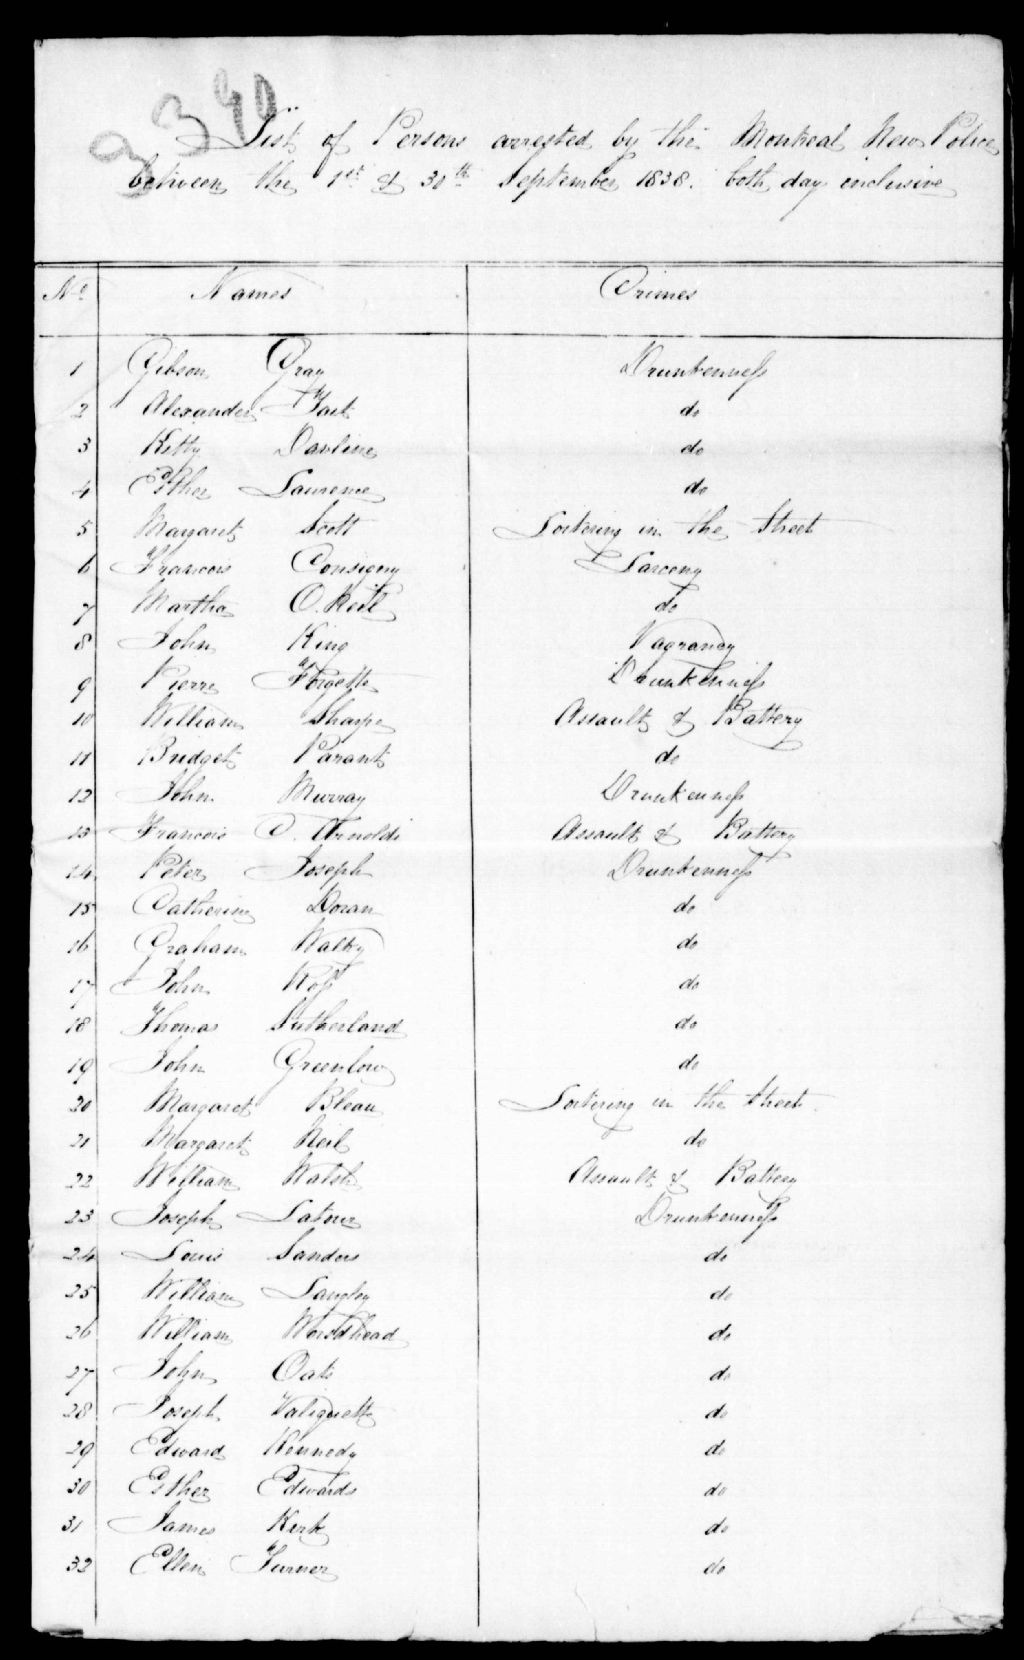 3390
List of Persons arrested by the Montreal New Police
between the 1st & 30th September 1838. both day inclusive
No Names Crimes
1 Gibson Gray Drunkenness
2 Alexander do
3 Kitty Darline do
4 Esther Laurence do
5 Margaret Scott Loitering in the Street
6 Francois Consigny Larceny
7 Martha O.Neil do
8 John King Vagrancy
9 Pierre Forgette Drunkenness
10 William Sharpe Assault & Battery
11 Bridget Parant do
12 John Murray Drunkenness
13 Francois C. Arnoldi Assault & Battery
14 Peter Joseph Drunkenness
15 Catherine Doran do
16 Graham do
17 John Ross do
18 Thomas Sutherland do
19 John Greenlow do
20 Margaret Bleau Loitering in the Street
21 Margaret Neil do
22 William Walsh Assault & Battery
23 Joseph Latour Drunkenness
24 Louis Sanders do
25 William Langley do
26 William do
27 John Oats do
28 Joseph Valiquette do
29 Edward Kennedy do
30 Esther Edwards do
31 James Kirk do
32 Ellen Turner do